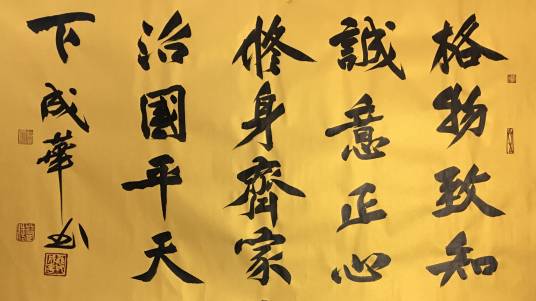 格物致知
誠意正心
修身齊家
治國平天
下成華书